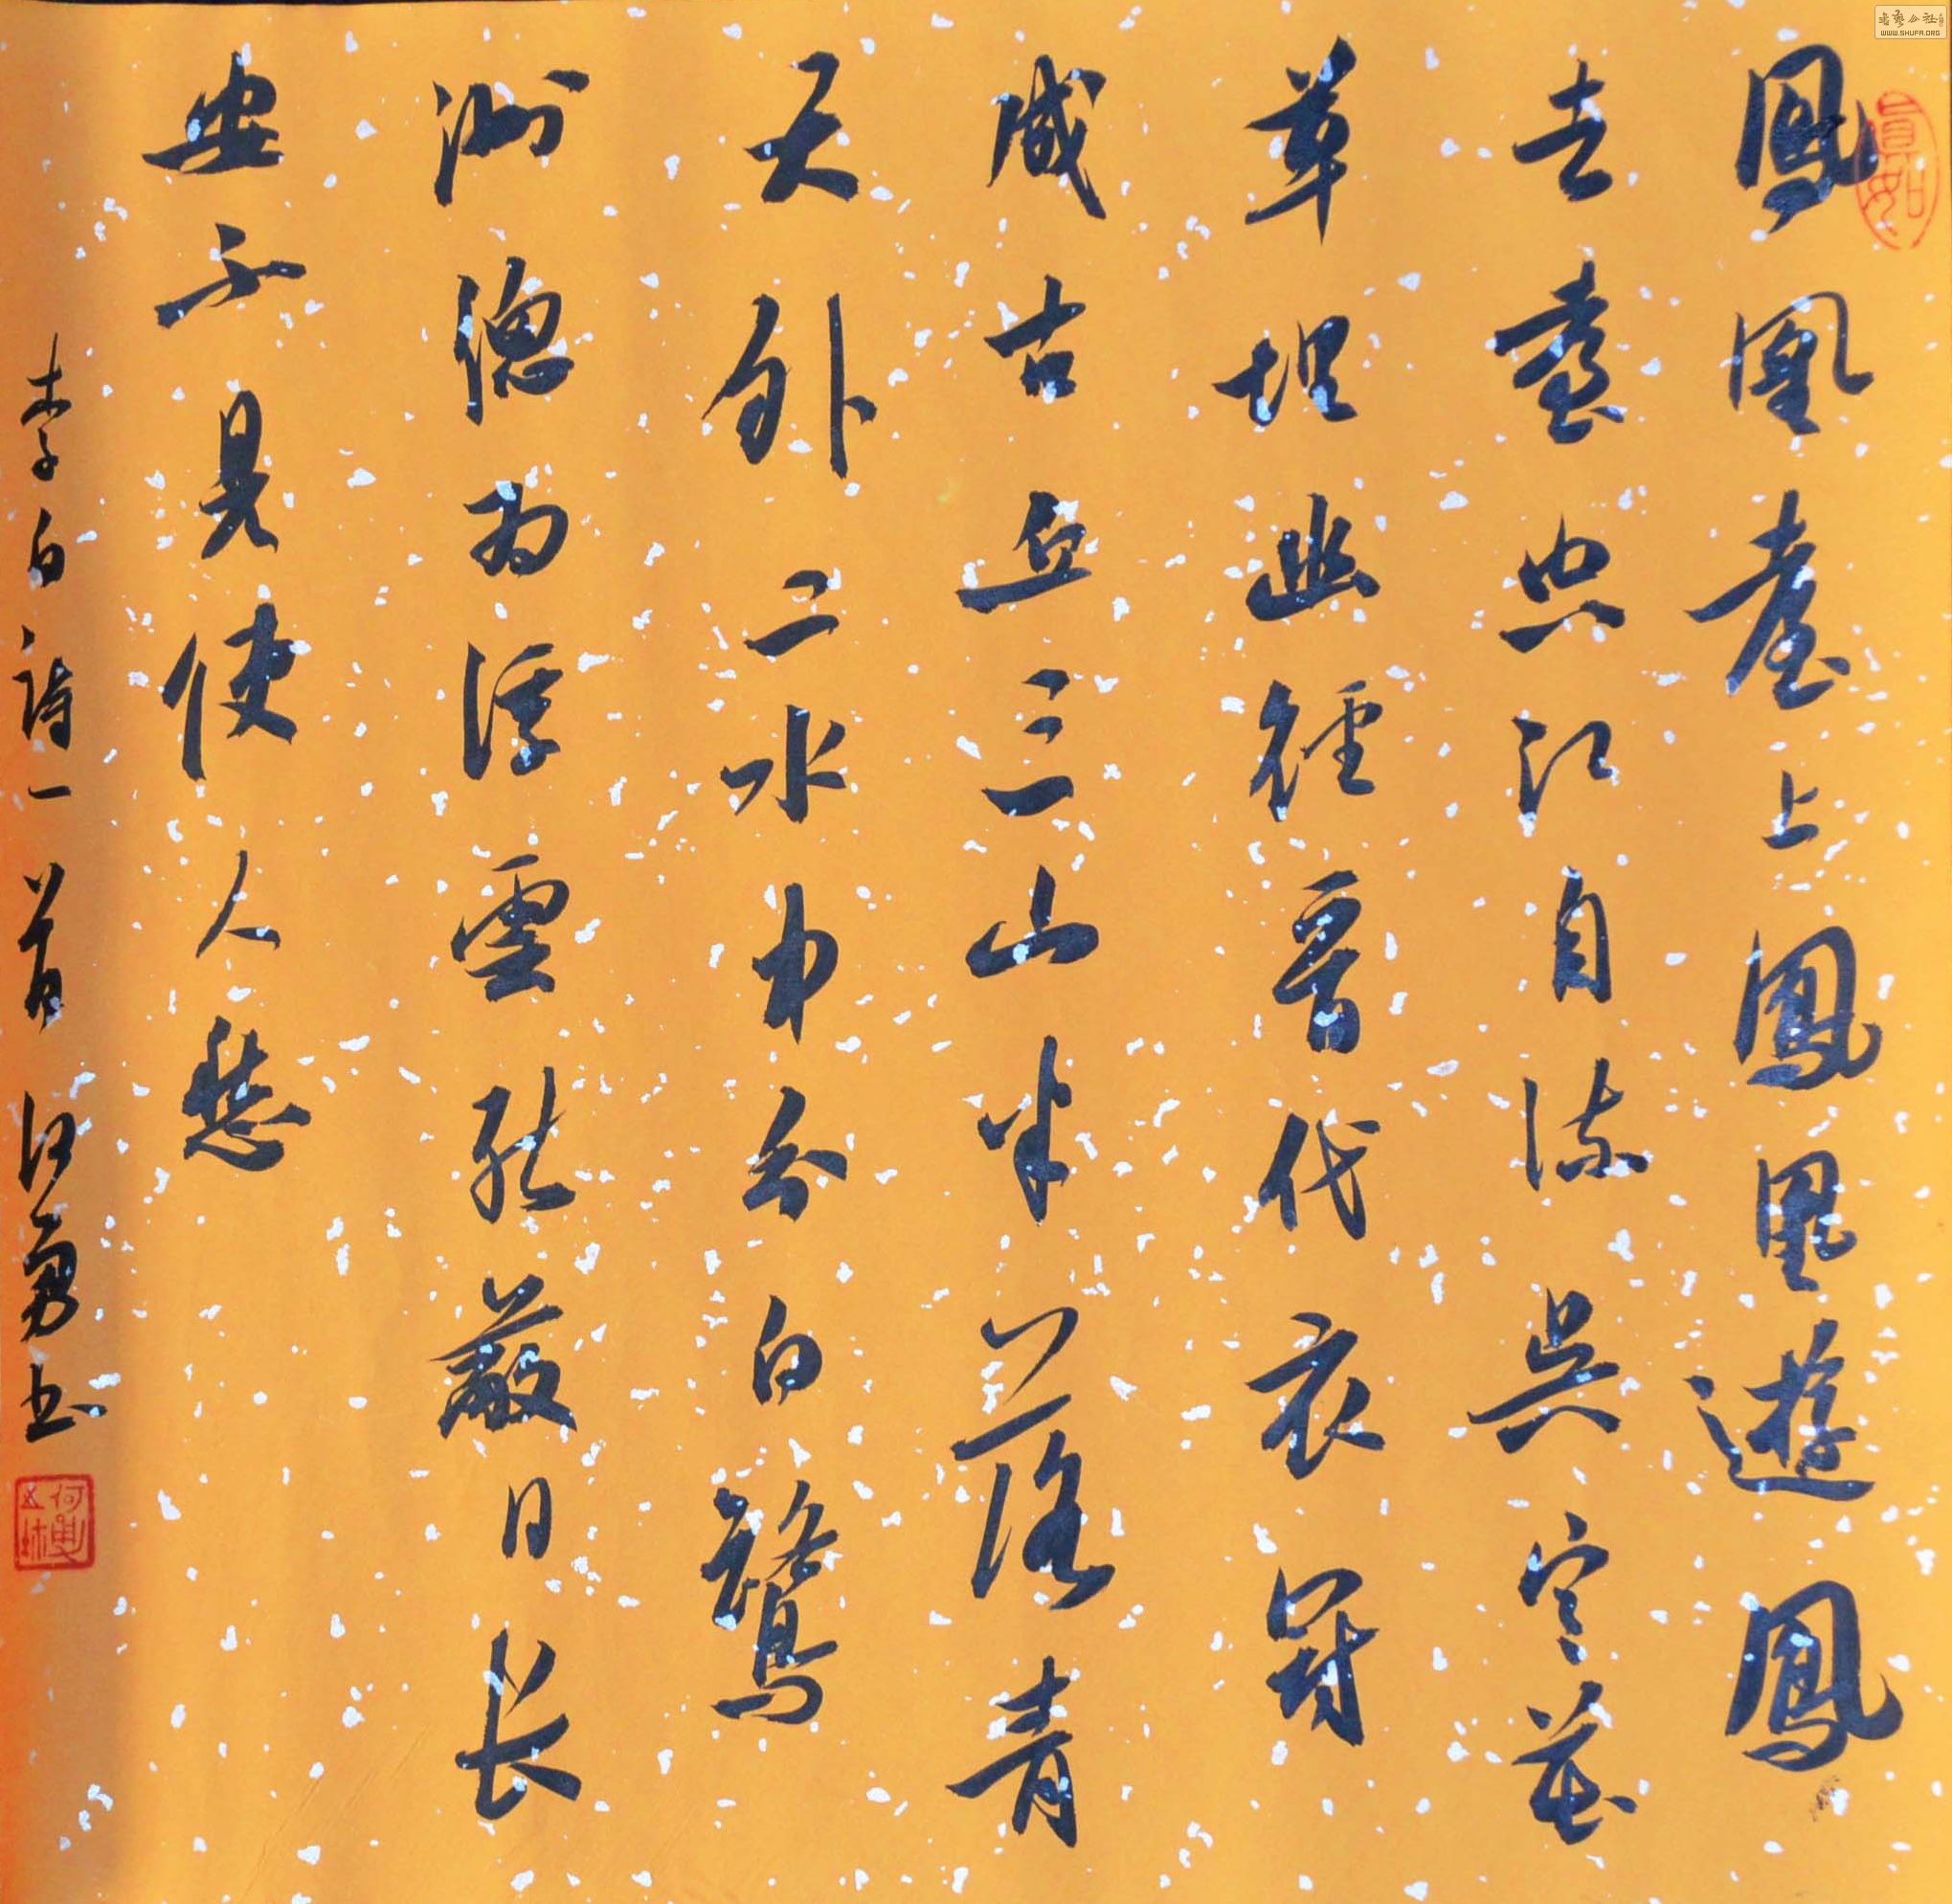 鳳凰臺上鳳凰遊鳳
去臺空江自流吳宮花
草埋幽徑晉代衣冠
成古丘三山半落青
天外二水中分白鷺
洲總為浮雲能蔽日長
安不見使人愁
李白詩一首 何勇书
WWW.SHUFA.ORG